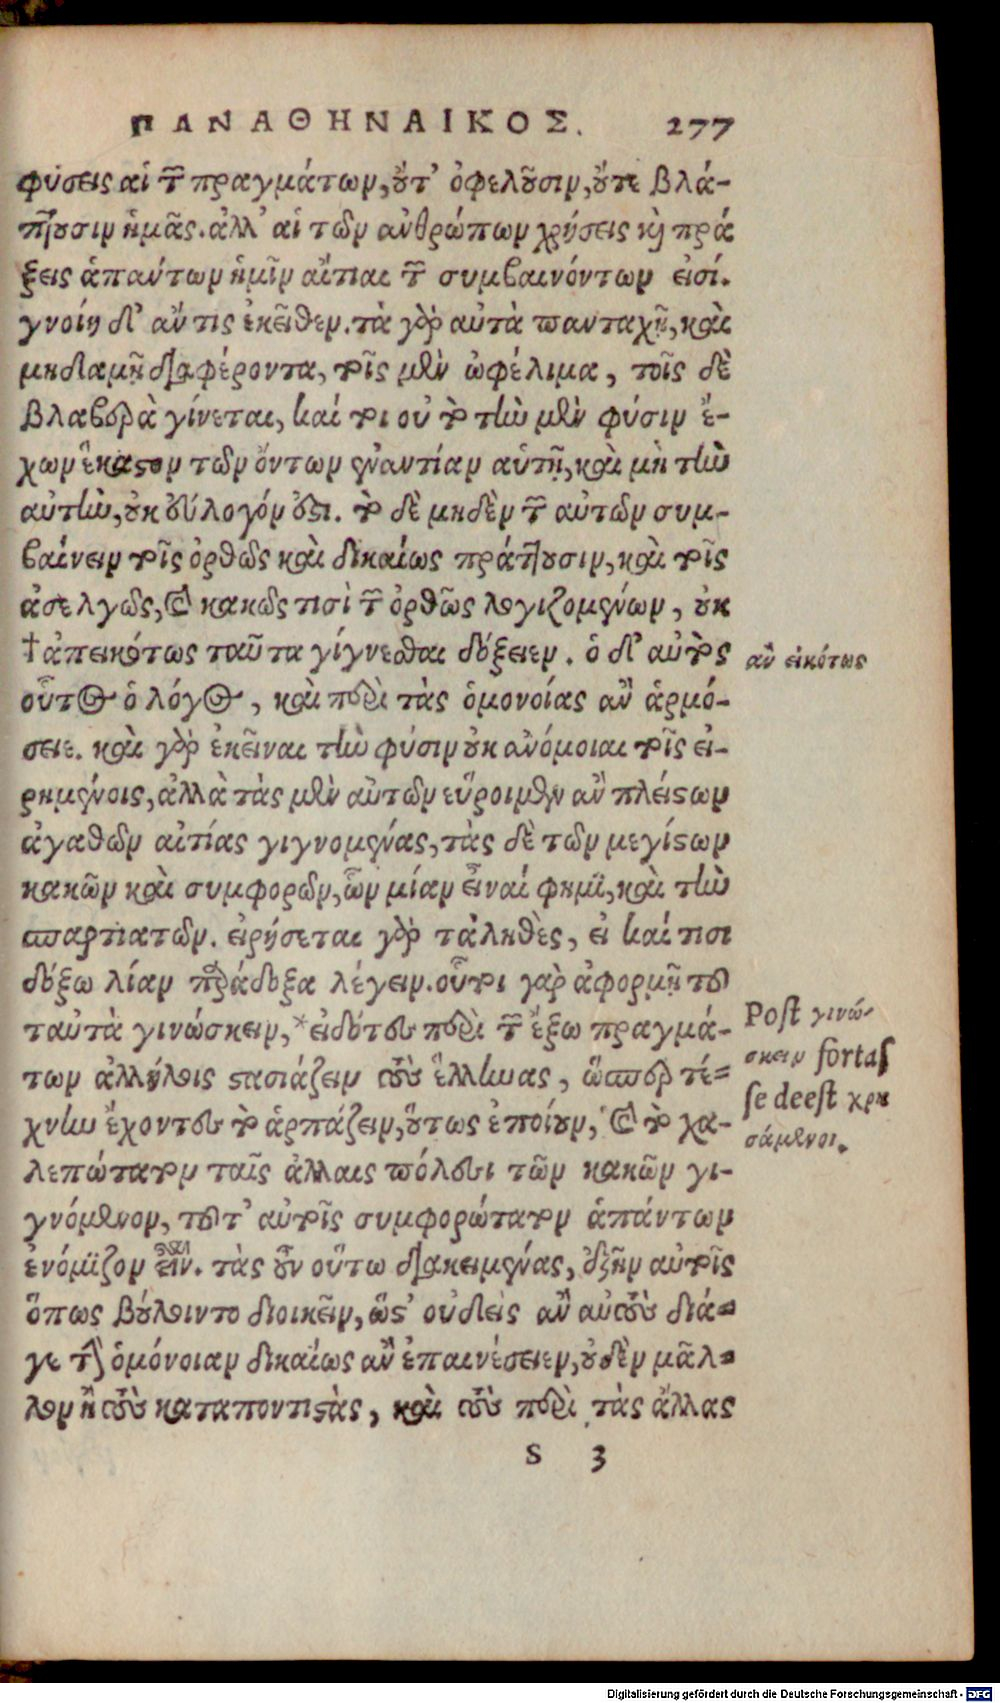 ΠΑΝΑΘΗΝΑΙΚΟΣ. 277
φύσεις αἱ τῶν πραγμάτων, οὔτ' ὀφελοῦσιν, οὔτε βλά-
πτουσιν ἡμᾶς. ἀλλ' αἱ τῶν ἀνθρώπων χρήσεις καὶ πρά
ξεις ἁπάντων ἡμῖν αἴτιαι τῶν συμβαινόντων εἰσί.
γνοίη δ' ἄν τις ἐκεῖθεν. τὰ γὰρ αὐτὰ πανταχῇ, καὶ
μηδαμῇ διαφέροντα, τοῖς μὲν ὠφέλιμα, τοῖς δὲ
βλαβερὰ γίνεται, καί τοι οὐ τὸ τὴν μὲν φύσιν ἔ-
χων ἕκαστον τῶν ὄντων ἐναντίαν αὑτῇ, καὶ μὴ τὴν
αὐτὴν, οὐκ εὔλογόν ἐστι. τὸ δὲ μηδὲν τῶν αὐτῶν συμ-
βαίνειν τοῖς ὀρθῶς καὶ δικαίως πράττουσιν, καὶ τοῖς
ἀσελγῶς, καὶ κακῶς τισὶ τῶν ὀρθῶς λογιζομένων, οὐκ
†ἀπεικότως ταῦτα γίγνεσθαι δόξειεν. ὁ δ' αὐτὸς
οὗτος ὁ λόγος, καὶ περὶ τὰς ὁμονοίας ἂν ἁρμό-
σειε. καὶ γὰρ ἐκεῖναι τὴν φύσιν οὐκ ἀνόμοιαι τοῖς εἰ-
ρημένοις, ἀλλὰ τὰς μὲν αὐτῶν εὕροιμεν ἂν πλείστων
ἀγαθῶν αἰτίας γιγνομένας, τὰς δὲ τῶν μεγίστων
κακῶν καὶ συμφορῶν, ὧν μίαν εἶναί φημι, καὶ τὴν
σπαρτιατῶν. εἰρήσεται γὰρ τἀληθὲς, εἰ καί τισι
δόξω λίαν παράδοξα λέγειν. οὗτοι γὰρ ἀφορμῇ τοῦ
ταὐτὰ γινώσκειν, *εἰδότες περὶ τῶν ἔξω πραγμά-
των ἀλλήλοις στασιάζειν τοὺς ἕλληνας, ὥσπερ τέ-
χνην ἔχοντες τὸ ἁρπάζειν, οὕτως ἐποίουν, καὶ τὸ χα-
λεπώτατον ταῖς ἄλλαις πόλεσι τῶν κακῶν γι-
γνόμενον, τοῦτ' αὐτοῖς συμφορώτατον ἁπάντων
ἐνόμιζον εἶναι. τὰς οὖν οὕτω διακειμένας, ἐξῆν αὐτοῖς
ὅπως βούλοιντο διοικεῖν, ὥστ' οὐδεὶς ἂν αὐτοὺς διά-
γε τὴν ὁμόνοιαν δικαίως ἂν ἐπαινέσειεν, οὐδὲν μᾶλ-
λον ἢ τοὺς καταποντιστὰς, καὶ τοὺς περὶ τὰς ἄλλας
S 3
ἂν εἰκότως
Post γινώ-
σκειν fortas
se deest χρη
σάμενοι.
Digitalisierung gefördert durch die Deutsche Forschungsgemeinschaft - DFG